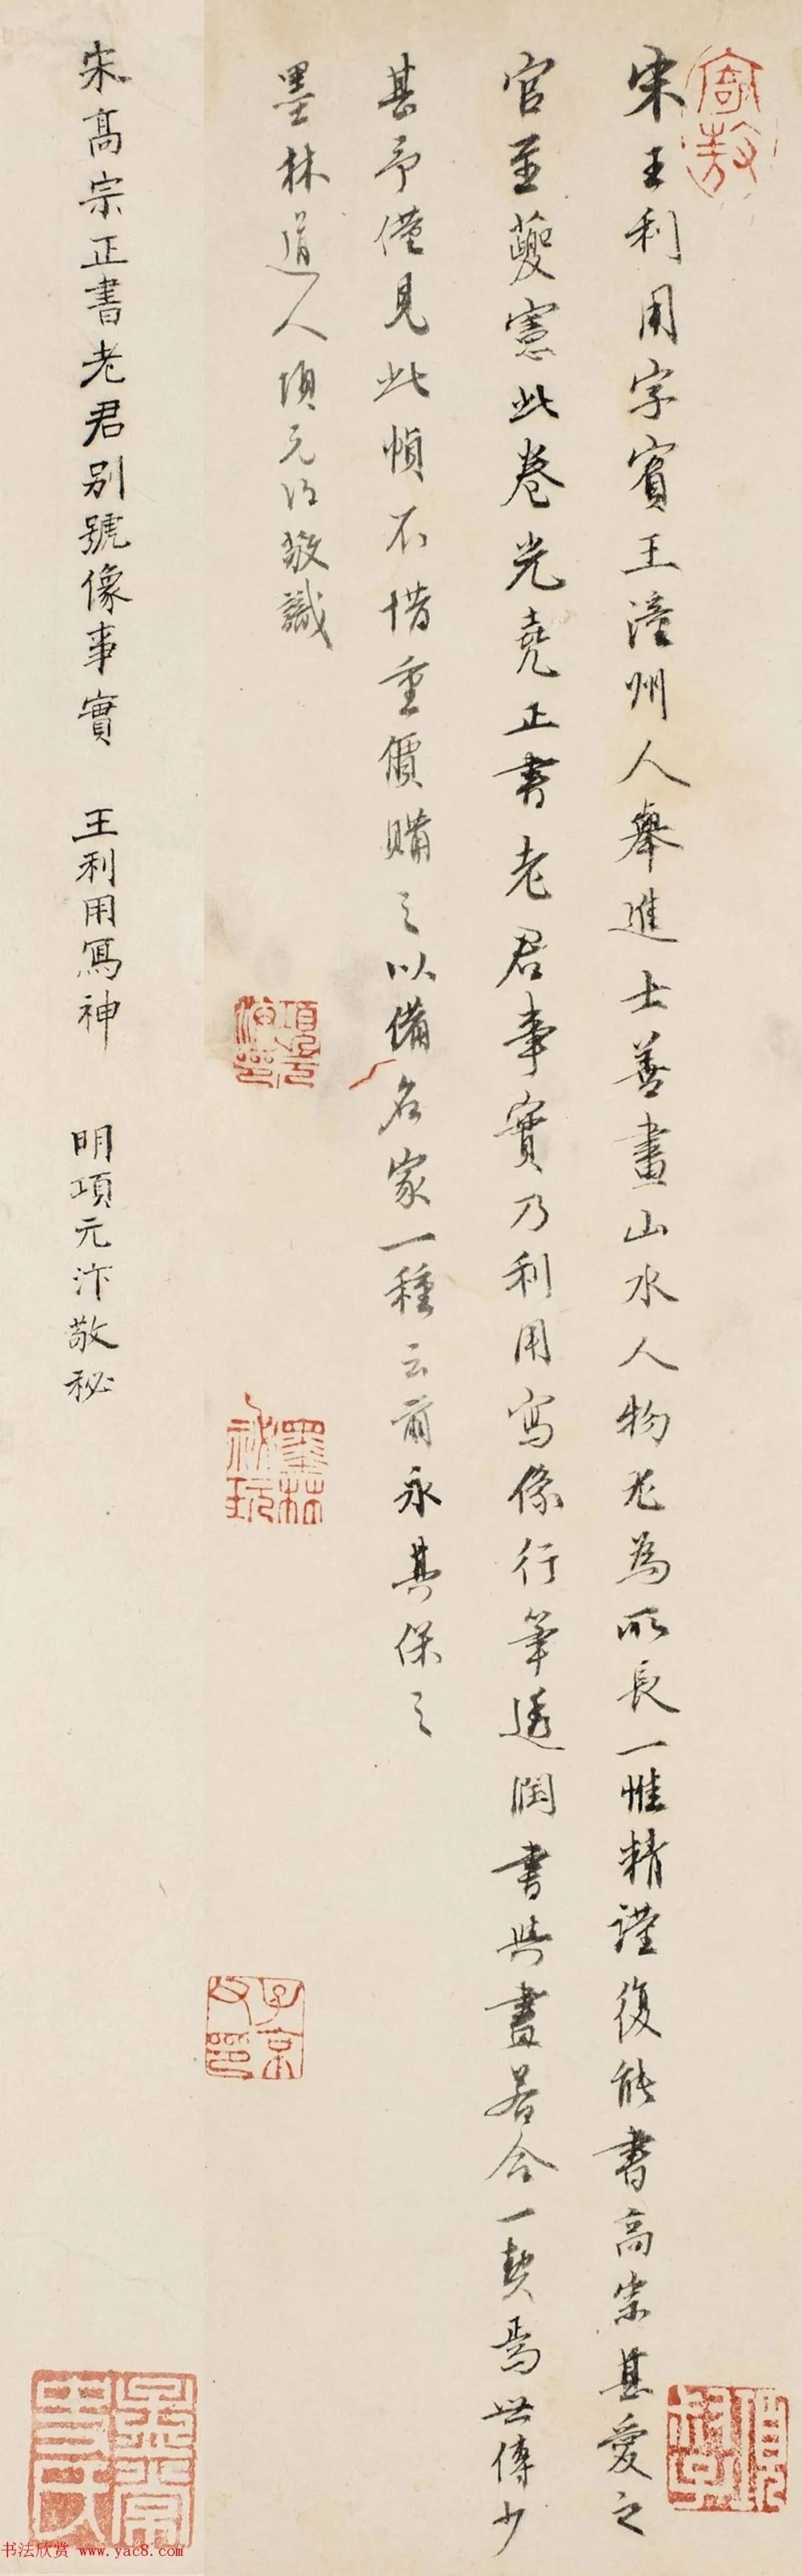 宋王利用字賓王潼州人舉進士善畫山水人物尤為所長一惟精謹復能書高宗甚愛之
官至夔憲此卷光堯正書老君事實乃利用寫像行筆遒潤書與畫若合一契焉世傳少
甚予僅見此幀不惜重價購之以備名家一種云爾永其保之
墨林道人項元汴敬識
宋高宗正書老君別號像事實 王利用寫神 明項元汴敬秘
寄敖
項元汴印
墨林祕玩
子京父印
书法欣赏 www.yac8.com